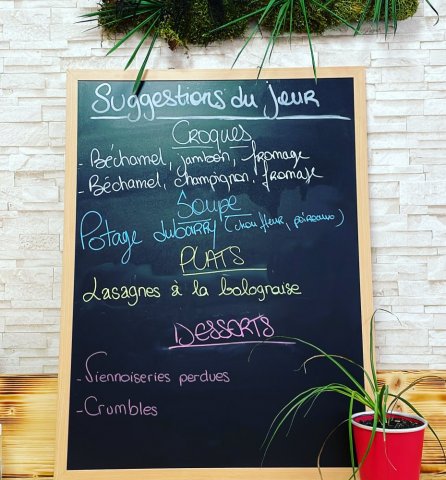 Suggestions du jour
Croques
- Béchamel, jambon, fromage
- Béchamel, champignon, fromage
Soupe
Potage dubarry (chou fleur, poireaux)
PLATS
Lasagnes à la bolognaise
DESSERTS
- Viennoiseries perdues
- Crumbles